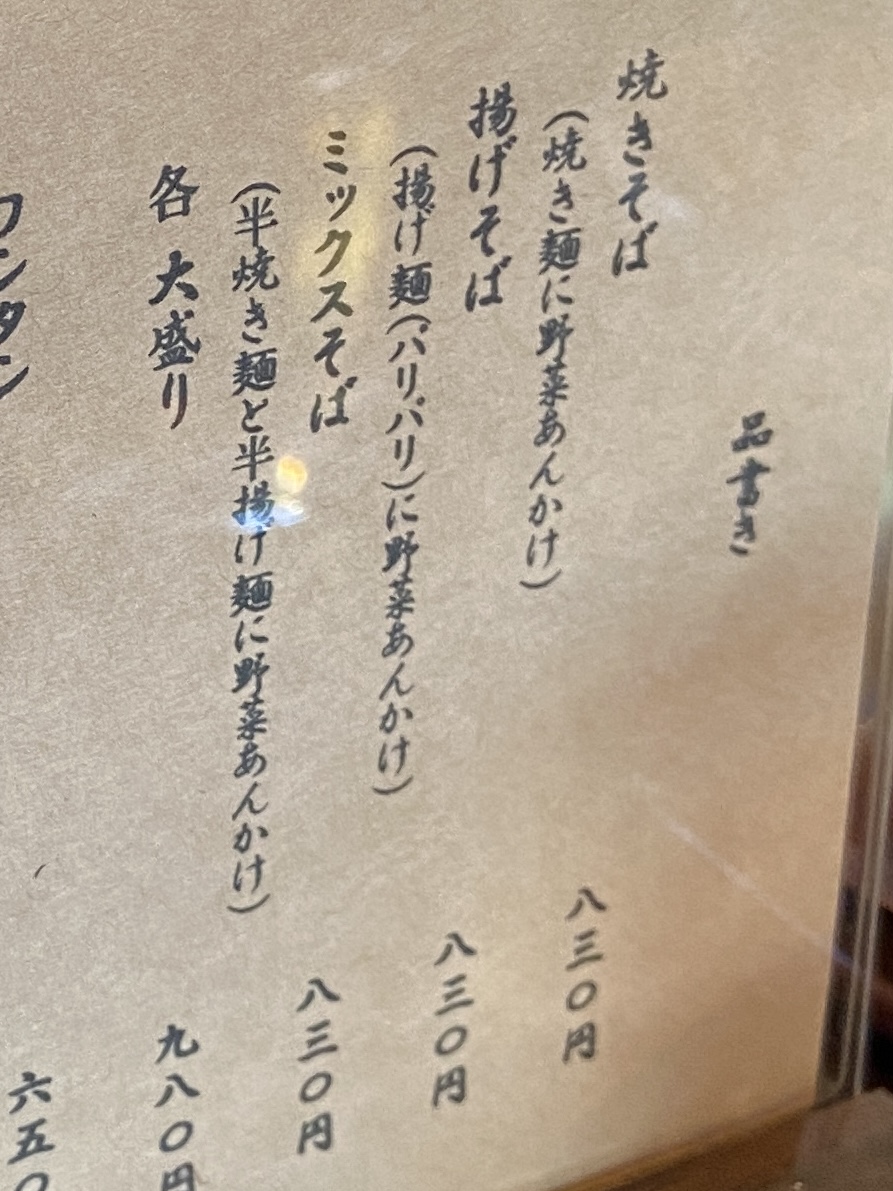 品書き
焼きそば 八三〇円
(焼き麺に野菜あんかけ)
揚げそば 八三〇円
(揚げ麺(パリパリ)に野菜あんかけ)
ミックスそば 八三〇円
(半焼き麺と半揚げ麺に野菜あんかけ)
各 大盛り 九八〇円
ワンタン 六五〇